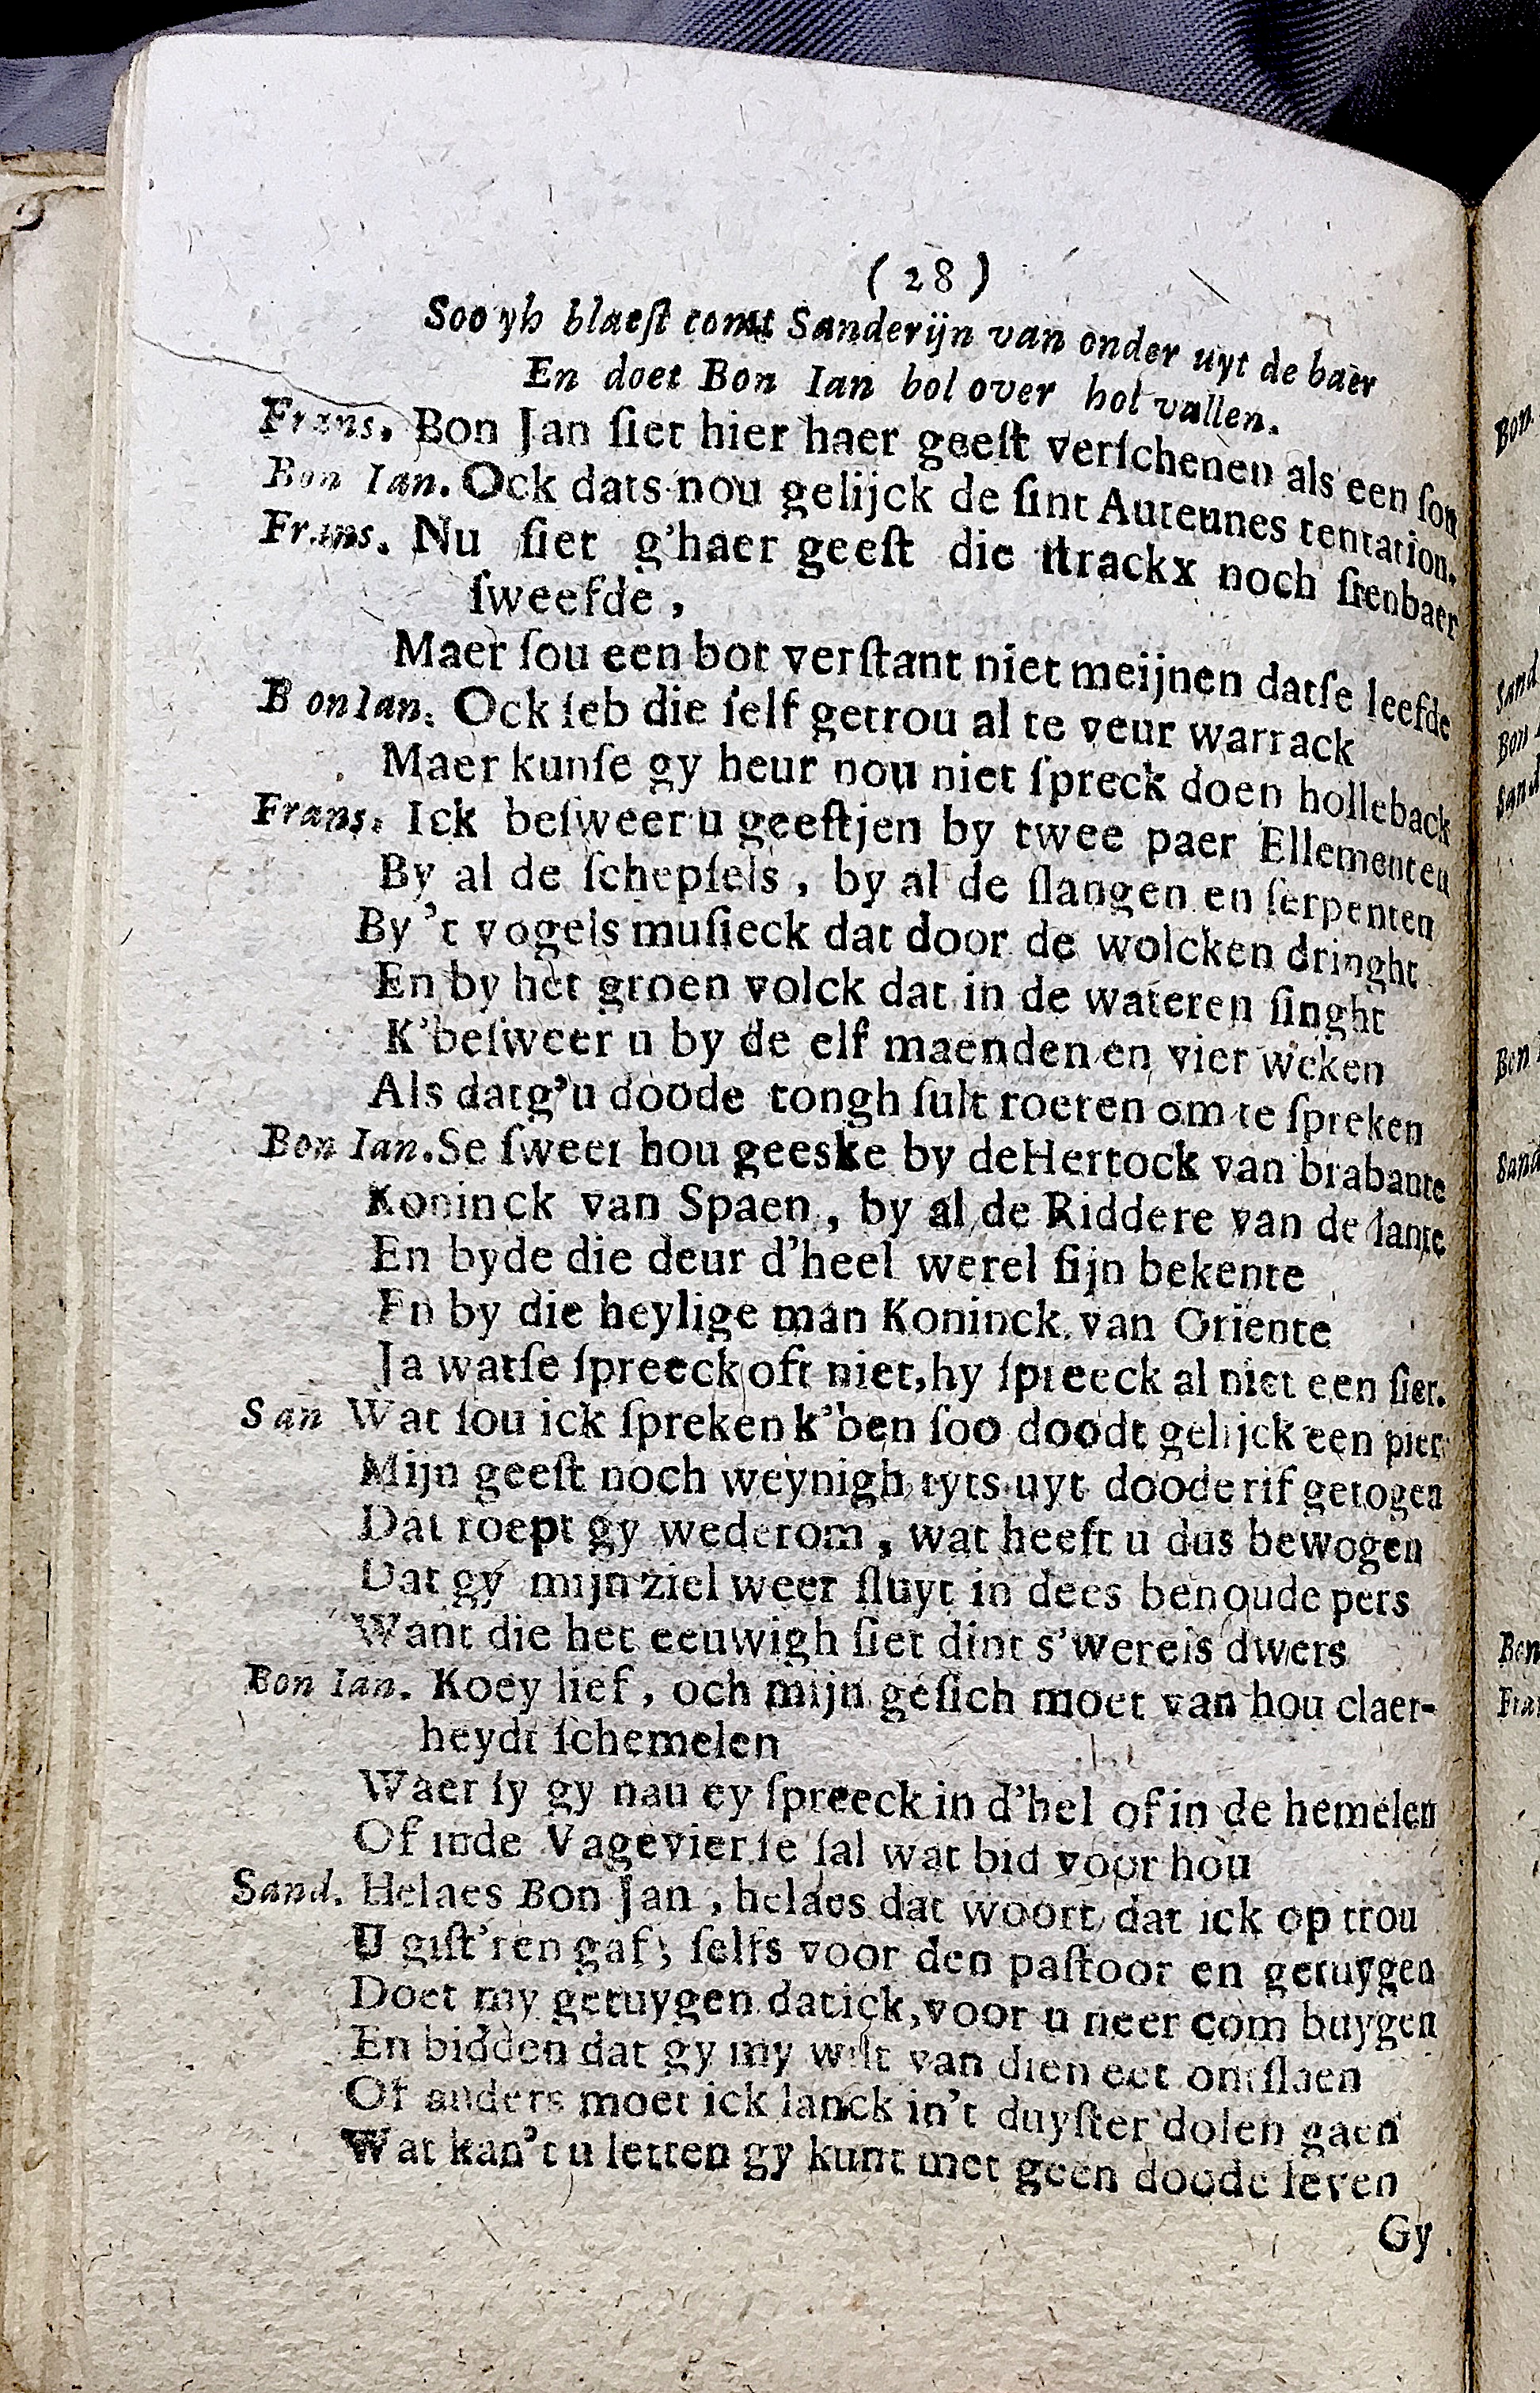 ( 28 )
Soo yh blaeſt comt Sanderijn van onder uyt de baer
En doet Bon Ian bol over hol vallen.
Frans. Bon Jan ſiet hier haer geeſt verſchenen als een ſon
Bon Ian. Ock dats nou gelijck de ſint Auteunes tentation.
Frans. Nu ſiet g'haer geeſt die ſtrackx noch ſienbaer
ſweefde ,
Maer ſou een bot verſtant niet meijnen datſe leefde
Bon Ian. Ock ſeb die ſelf getrou al te veur warrack
Maer kunſe gy heur nou niet ſpreck doen holleback
Frans. Ick beſweer u geeſtjen by twee paer Ellementen
By al de ſchepſels , by al de ſlangen en ſerpenten
By 't vogels muſieck dat door de wolcken dringht
En by het groen volck dat in de wateren ſinght
K'beſweer u by de elf maenden en vier weken
Als datg'u doode tongh ſult roeren om te ſpreken
Bon Ian. Se ſweer hou geeske by deHertock van brabante
Koninck van Spaen , by al de Riddere van de lante
En byde die deur d'heel werel ſijn bekente
En by die heylige man Koninck van Oriente
Ja watſe ſpreeck oft niet, hy ſpreeck al niet een ſier.
San Wat ſou ick ſpreken k'ben ſoo doodt gelijck een pier
Mijn geeſt noch weynigh tyts uyt doode rif getogen
Dat roept gy wederom , wat heeft u dus bewogen
Dat gy mijn ziel weer ſluyt in dees benoude pers
Want die het eeuwigh ſiet dint s'werels dwers
Bon Ian. Koey lief , och mijn geſich moet van hou claer-
heydt ſchemelen
Waer ſy gy nau ey ſpreeck in d'hel of in de hemelen
Of inde Vagevier ſe ſal wat bid voor hou
Sand. Helaes Bon Jan , helaes dat woort dat ick op trou
U giſt'ren gaf ; ſelfs voor den paſtoor en getuygen
Doet my getuygen dat ick, voor u neer com buygen
En bidden dat gy my wilt van dien eet ontſlaen
Of anders moet ick lanck in't duyſter dolen gaen
Wat kan't u letten gy kunt met geen doode leven
Gy
Bon.
Sand
Bon
Sand
Bon
Sand
Bon
Fra